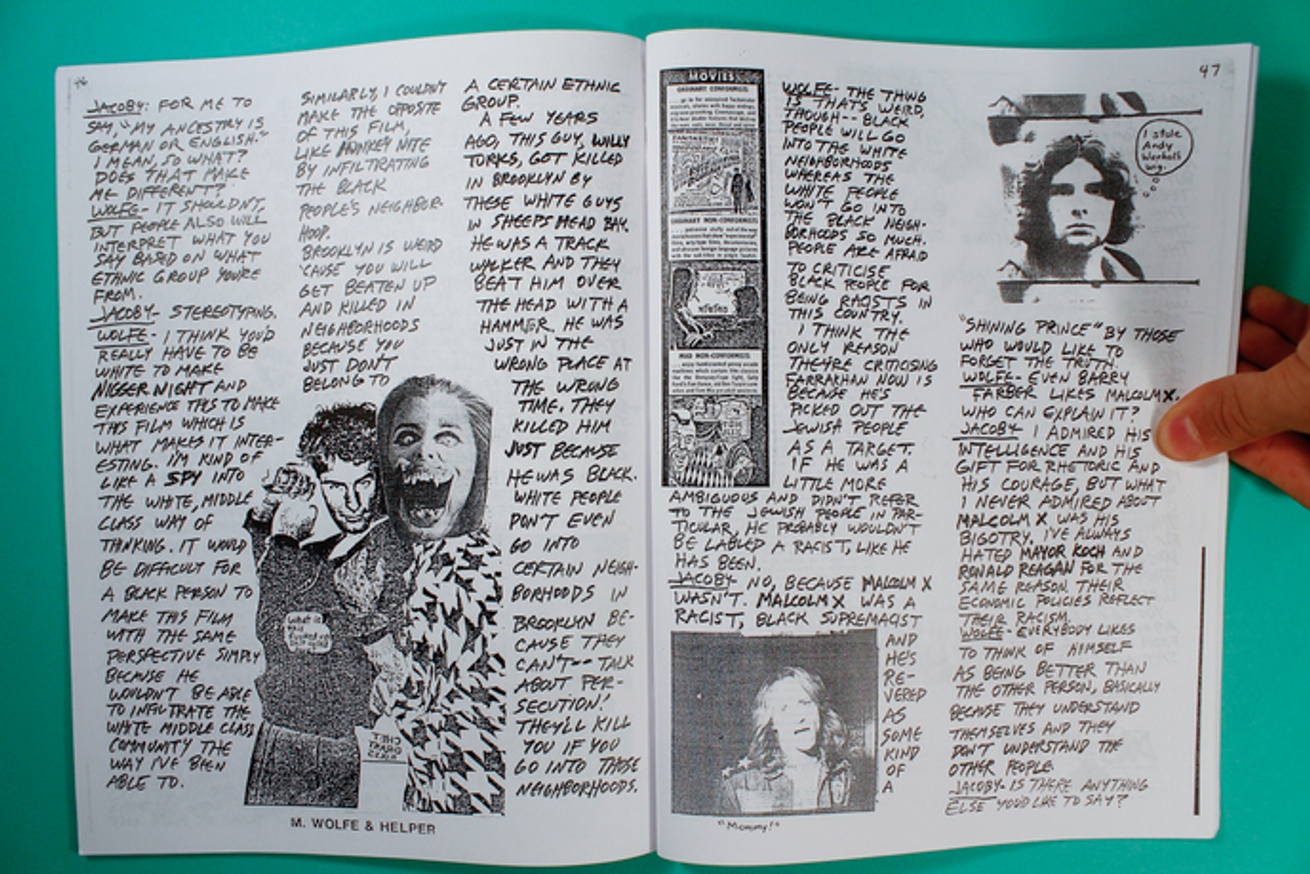 46
JACOBY: FOR ME TO
SAY, "MY ANCESTRY IS
GERMAN OR ENGLISH."
I MEAN, SO WHAT?
DOES THAT MAKE
ME DIFFERENT?
WOLFE- IT SHOULDN'T,
BUT PEOPLE ALSO WILL
INTERPRET WHAT YOU
SAY BASED ON WHAT
ETHNIC GROUP YOU'RE
FROM.
JACOBY- STEREOTYPING.
WOLFE- I THINK YOU'D
REALLY HAVE TO BE
WHITE TO MAKE
NIGGER NIGHT AND
EXPERIENCE THIS TO MAKE
THIS FILM WHICH IS
WHAT MAKES IT INTER-
ESTING. I'M KIND OF
LIKE A SPY INTO
THE WHITE, MIDDLE
CLASS WAY OF
THINKING. IT WOULD
BE DIFFICULT FOR
A BLACK PERSON TO
MAKE THIS FILM
WITH THE SAME
PERSPECTIVE SIMPLY
BECAUSE HE
WOULDN'T BE ABLE
TO INFILTRATE THE
WHITE MIDDLE CLASS
COMMUNITY THE
WAY I'VE BEEN
ABLE TO.
SIMILARLY, I COULDN'T
MAKE THE OPPOSITE
OF THIS FILM,
LIKE HONKEY NITE
BY INFILTRATING
THE BLACK
PEOPLE'S NEIGHBOR-
HOOD.
BROOKLYN IS WEIRD
'CAUSE YOU WILL
GET BEATEN UP
AND KILLED IN
NEIGHBORHOODS
BECAUSE YOU
JUST DON'T
BELONG TO
A CERTAIN ETHNIC
GROUP.
A FEW YEARS
AGO, THIS GUY, WILLY
TURKS, GOT KILLED
IN BROOKLYN BY
THESE WHITE GUYS
IN SHEEPS HEAD BAY.
HE WAS A TRACK
WALKER AND THEY
BEAT HIM OVER
THE HEAD WITH A
HAMMER. HE WAS
JUST IN THE
WRONG PLACE AT
THE WRONG
TIME. THEY
KILLED HIM
JUST BECAUSE
HE WAS BLACK.
WHITE PEOPLE
DON'T EVEN
GO INTO
CERTAIN NEIGH-
BORHOODS IN
BROOKLYN BE-
CAUSE THEY
CAN'T-- TALK
ABOUT PER-
SECUTION!
THEY'LL KILL
YOU IF YOU
GO INTO THOSE
NEIGHBORHOODS.
M. WOLFE & HELPER
47
MOVIES
ORDINARY CONFORMISTS
ORDINARY NON-CONFORMISTS
MAD NON-CONFORMISTS
WOLFE- THE THING
IS THAT'S WEIRD,
THOUGH-- BLACK
PEOPLE WILL GO
INTO THE WHITE
NEIGHBORHOODS
WHEREAS THE
WHITE PEOPLE
WON'T GO INTO
THE BLACK NEIGH-
BORHOODS SO MUCH.
PEOPLE ARE AFRAID
TO CRITICISE
BLACK PEOPLE FOR
BEING RACISTS IN
THIS COUNTRY.
I THINK THE
ONLY REASON
THEY'RE CRITICISING
FARRAKHAN NOW IS
BECAUSE HE'S
PICKED OUT THE
JEWISH PEOPLE
AS A TARGET.
IF HE WAS A
LITTLE MORE
AMBIGUOUS AND DIDN'T REFER
TO THE JEWISH PEOPLE IN PAR-
TICULAR, HE PROBABLY WOULDN'T
BE LABLED A RACIST, LIKE HE
HAS BEEN.
JACOBY- NO, BECAUSE MALCOLM X
WASN'T. MALCOLM X WAS A
RACIST, BLACK SUPREMACIST
AND
HE'S
RE-
VERED
AS
SOME
KIND
OF
A
"Mommy!"
I stole
Andy
Warhol's
wig.
"SHINING PRINCE" BY THOSE
WHO WOULD LIKE TO
FORGET THE TRUTH.
WOLFE- EVEN BARRY
FARBER LIKES MALCOLM X.
WHO CAN EXPLAIN IT?
JACOBY- I ADMIRED HIS
INTELLIGENCE AND HIS
GIFT FOR RHETORIC AND
HIS COURAGE, BUT WHAT
I NEVER ADMIRED ABOUT
MALCOLM X WAS HIS
BIGOTRY. I'VE ALWAYS
HATED MAYOR KOCH AND
RONALD REAGAN FOR THE
SAME REASON. THEIR
ECONOMIC POLICIES REFLECT
THEIR RACISM.
WOLFE- EVERYBODY LIKES
TO THINK OF HIMSELF
AS BEING BETTER THAN
THE OTHER PERSON, BASICALLY
BECAUSE THEY UNDERSTAND
THEMSELVES AND THEY
DON'T UNDERSTAND THE
OTHER PEOPLE.
JACOBY- IS THERE ANYTHING
ELSE YOU'D LIKE TO SAY?